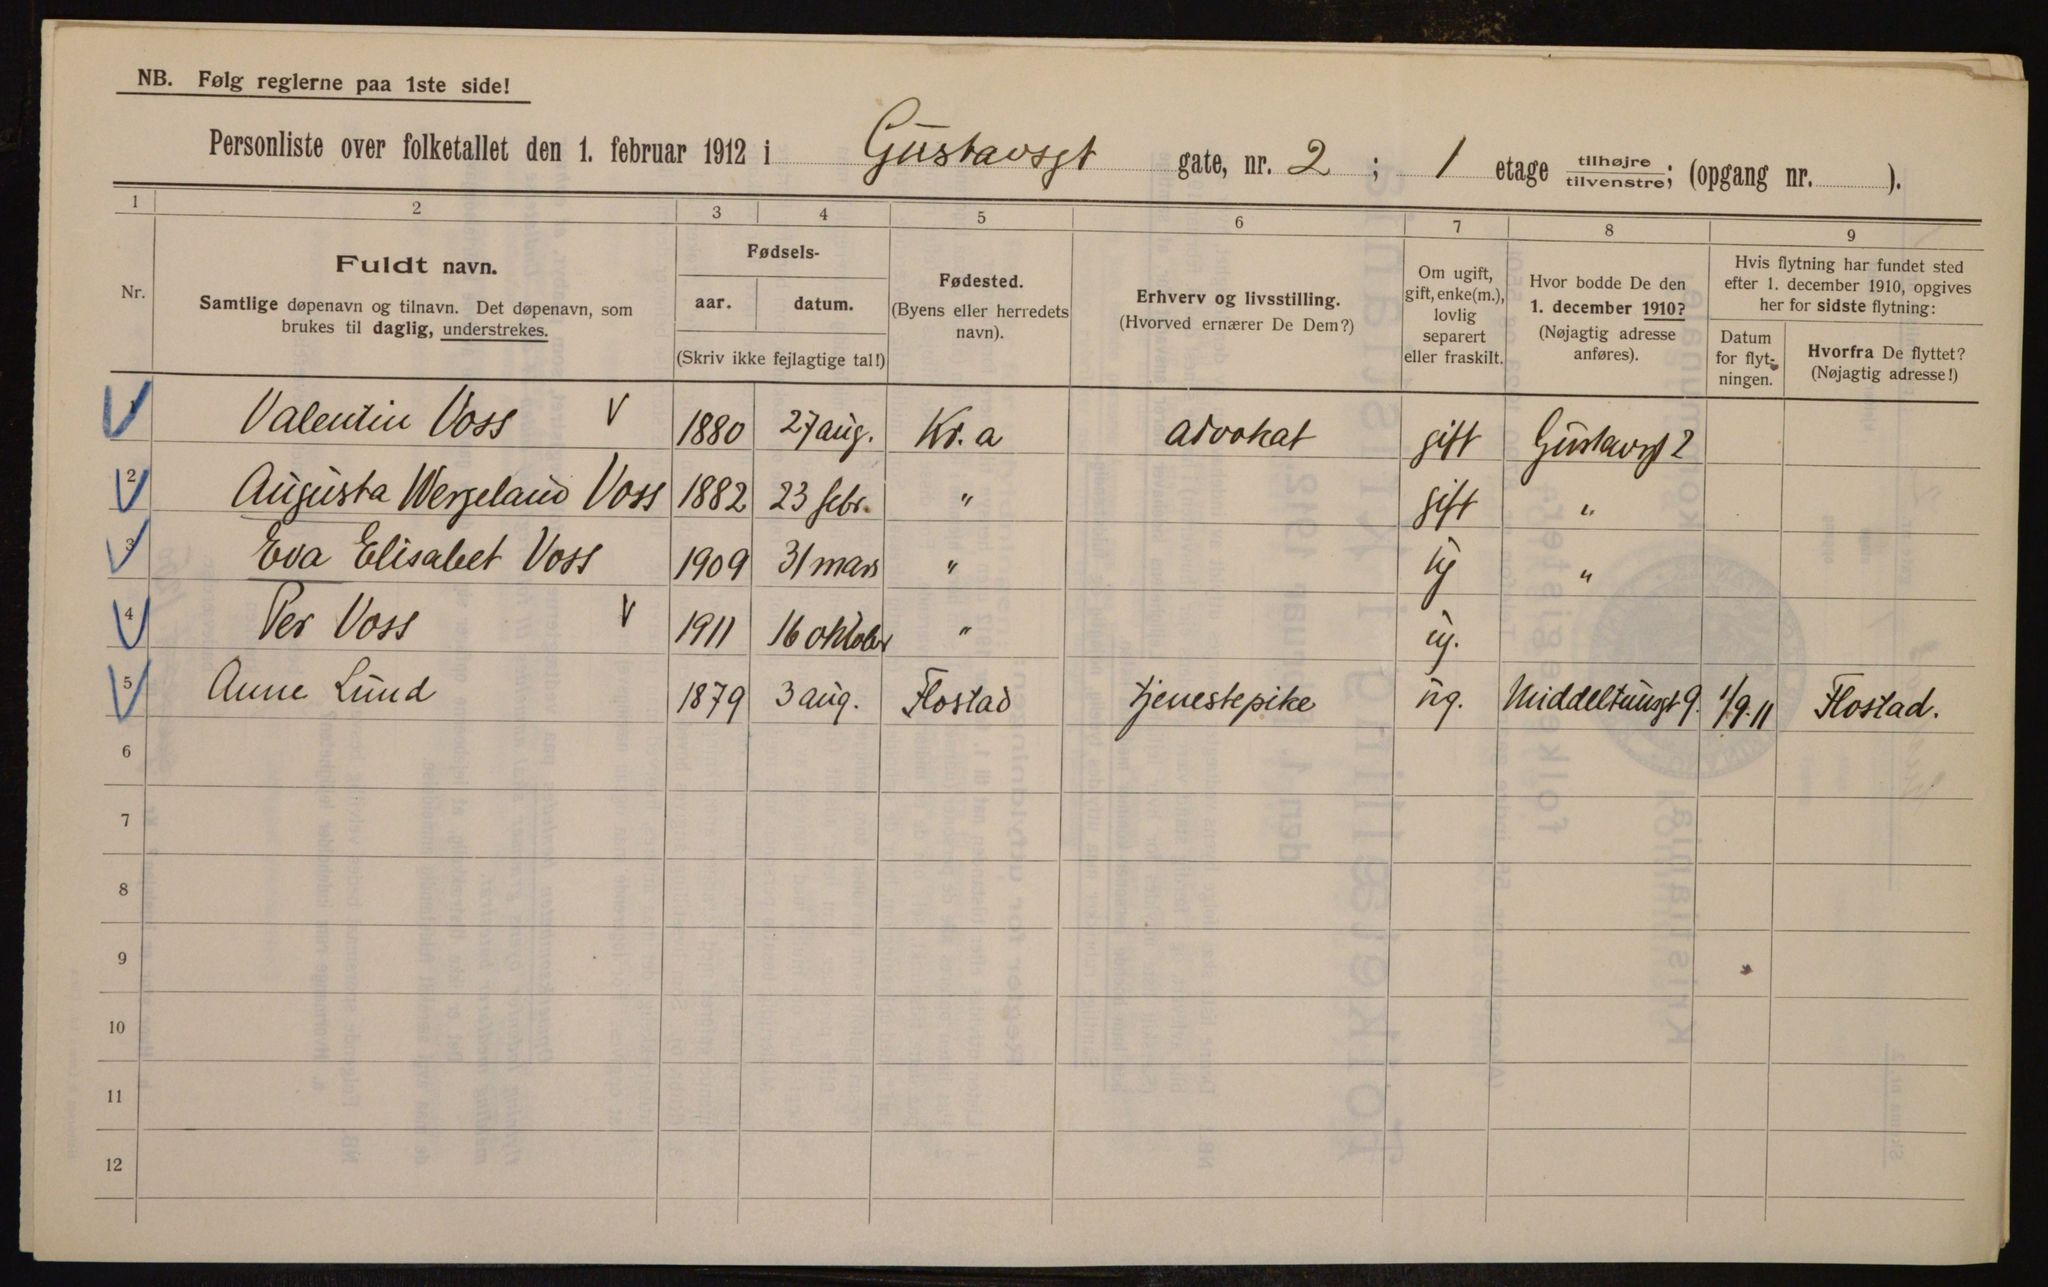 NB. Følg reglerne paa 1ste side!
Personliste over folketallet den 1. februar 1912 i Gustavsgt gate, nr. 2 ; 1 etage tilhøjre/tilvenstre; (opgang nr. ).
1 2 3 4 5 6 7 8 9
Nr.
Fuldt navn.
Samtlige døpenavn og tilnavn. Det døpenavn, som
brukes til daglig, understrekes.
Fødsels-
aar. datum.
(Skriv ikke fejlagtige tal!)
Fødested.
(Byens eller herredets
navn).
Erhverv og livsstilling.
(Hvorved ernærer De Dem?)
Om ugift,
gift, enke(m.),
lovlig
separert
eller fraskilt.
Hvor bodde De den
1. december 1910?
(Nøjagtig adresse
anføres).
Hvis flytning har fundet sted
efter 1. december 1910, opgives
her for sidste flytning:
Datum
for flyt-
ningen.
Hvorfra De flyttet?
(Nøjagtig adresse!)
Valentin Voss V 1880 27 aug. Kr.a advokat gift Gustavsgt 2
2 Augusta Wergeland Voss 1882 23 febr. " gift "
3 Eva Elisabet Voss 1909 31 mars " ug "
4 Per Voss V 1911 16 oktober " ug.
5 Anne Lund 1879 3 aug. Flostad tjenestepike ug. Middeltunsgt 9. 1/9.11 Flostad.
6
7
8
9
10
11
12